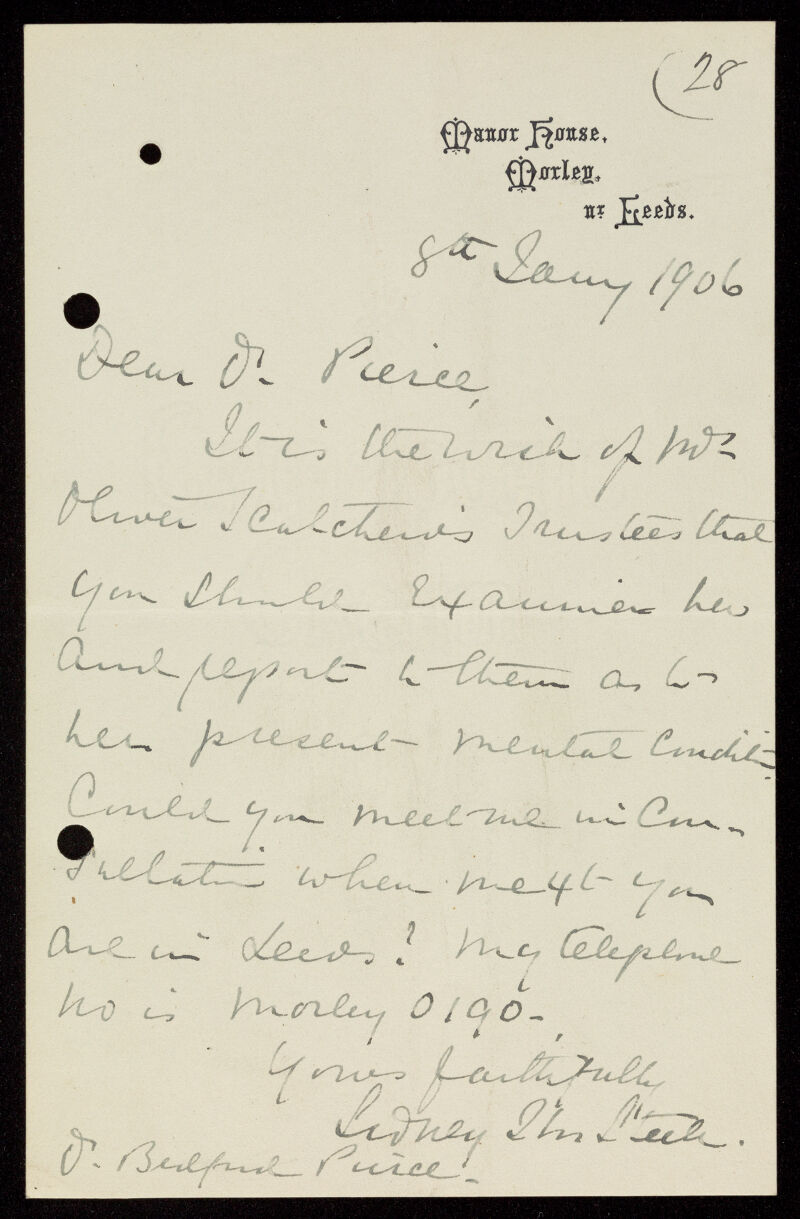 (28
Manor House,
Morley,
nr Leeds.
8th Jany 1906
Dear Dr. Pierce,
It is the wish of Mrs
Oliver Scatcherd's Trustees that
you should examine her
and report to them as to
her present mental condition.
Could you meet me in Con-
sultation when next you
are in Leeds? My telephone
No is Morley 0190.
Yours faithfully
Sidney Steele.
Dr. Bedford Pierce.